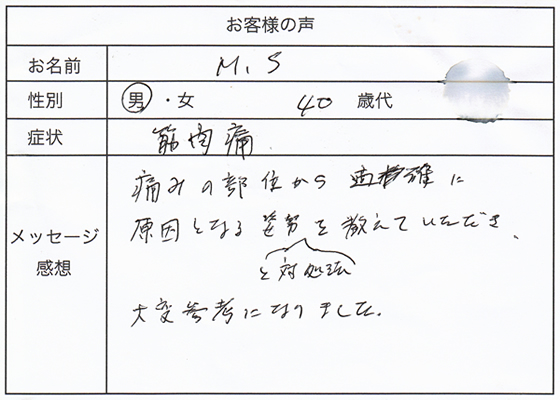 お客様の声
お名前 M.S
性別 男・女 40 歳代
症状 筋肉痛
メッセージ
感想
痛みの部位から適確に
原因となる姿勢を教えていただき、
と対処法
大変参考になりました。